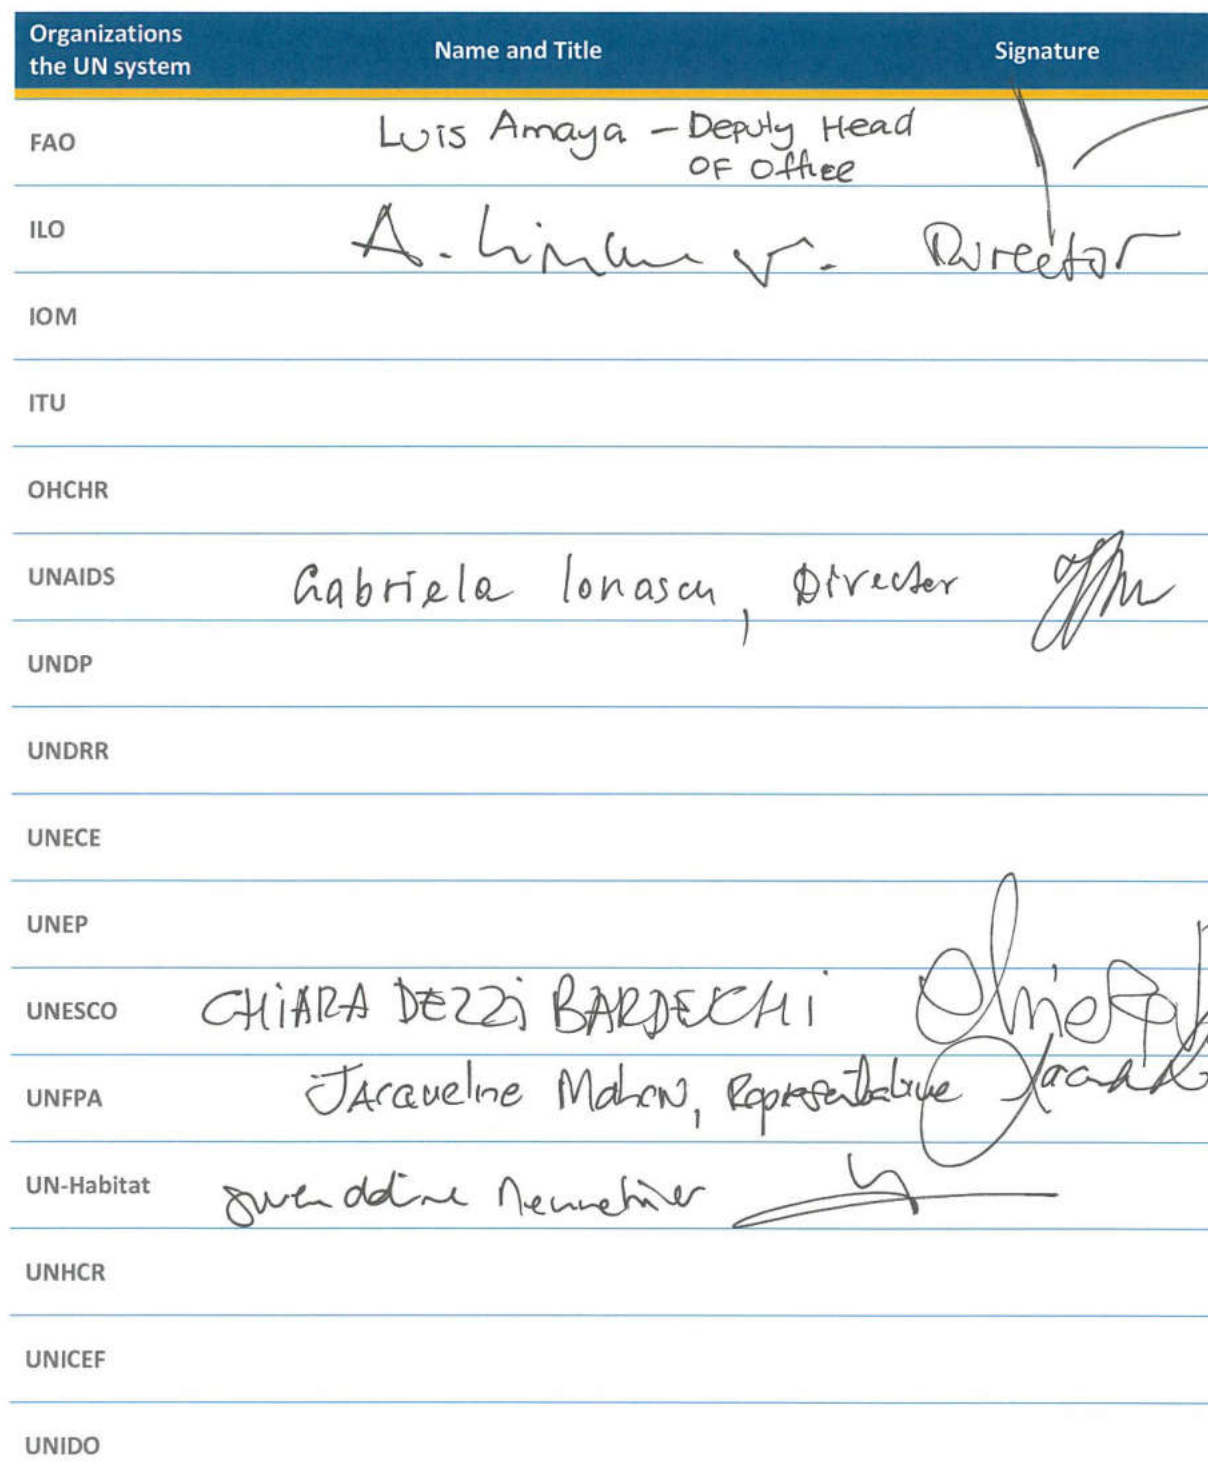 Organizations
the UN system
Name and Title
Signature
FAO
Luis Amaya - Deputy Head
OF Office
ILO
A. Director
IOM
ITU
OHCHR
UNAIDS
Gabriela Ionascu, Director
UNDP
UNDRR
UNECE
UNEP
UNESCO
CHIARA DEZZI BARDESCHI
UNFPA
Jacqueline Mahon, Representative
UN-Habitat
UNHCR
UNICEF
UNIDO